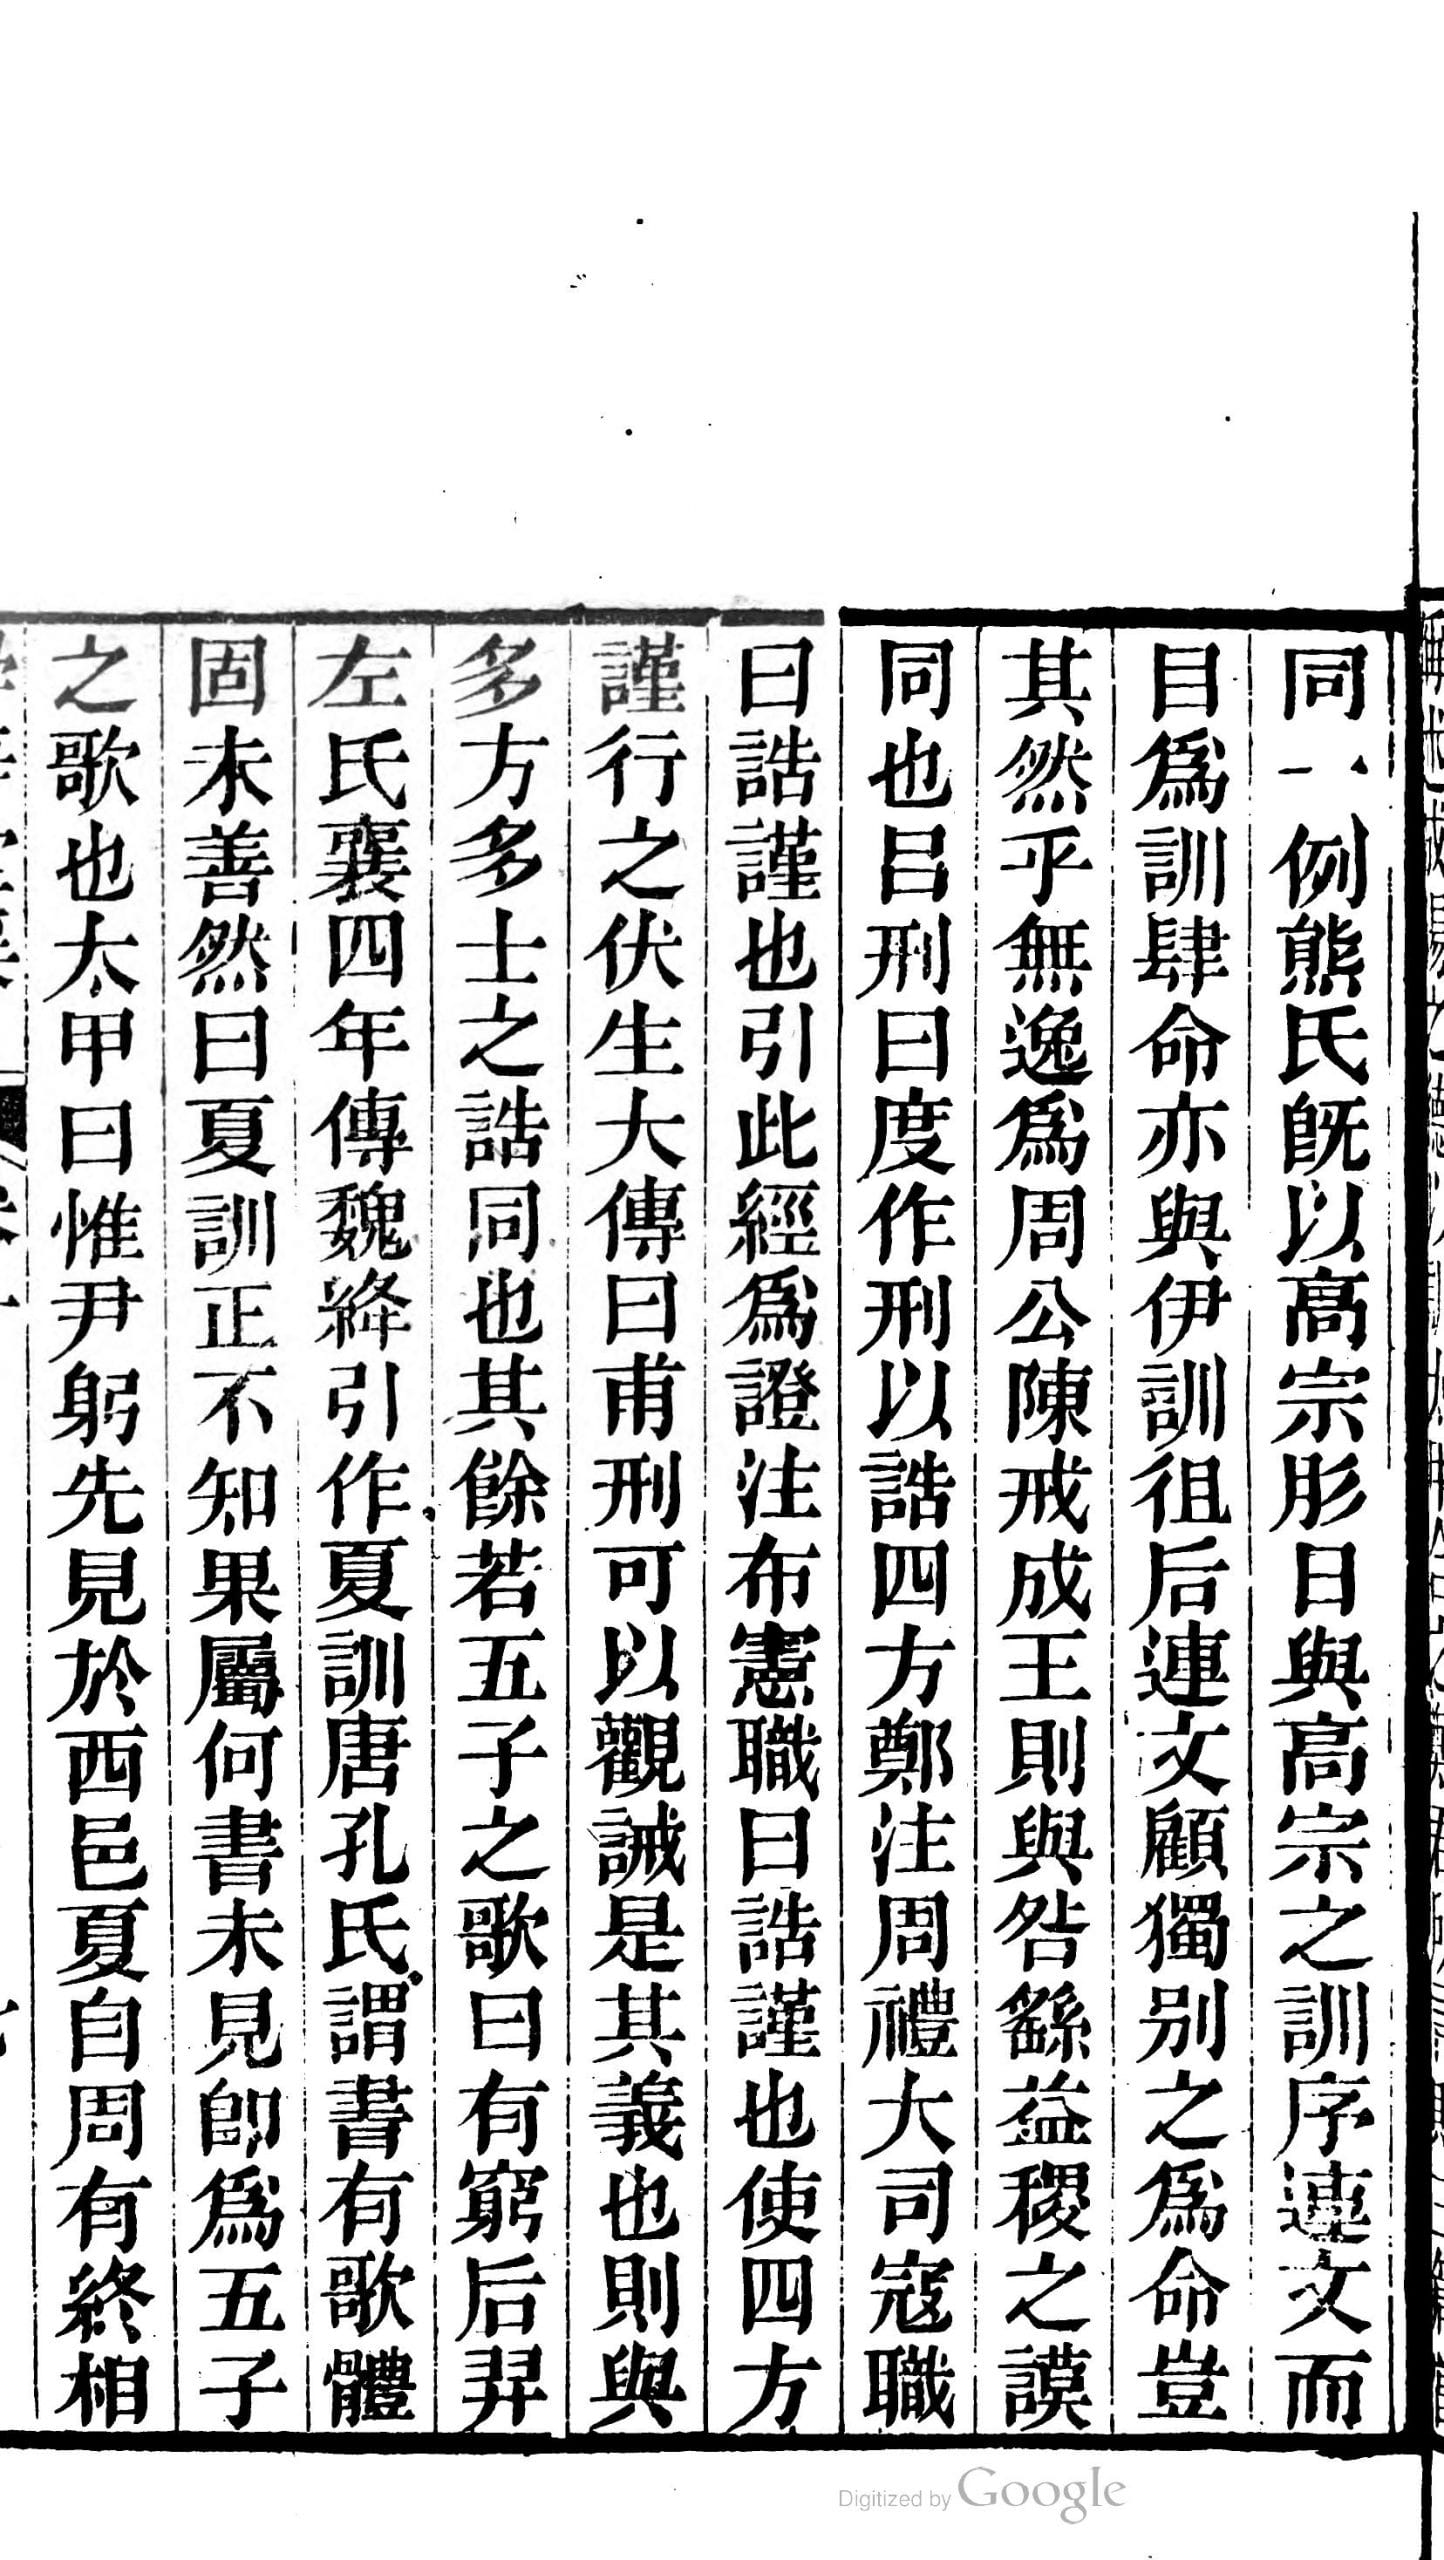 同一例熊氏旣以高宗肜日與高宗之訓序連文而
目爲訓肆命亦與伊訓徂后連文顧獨别之爲命豈
其然乎無逸爲周公陳戒成王則與咎繇益稷之謨
同也吕刑曰度作刑以誥四方鄭注周禮大司寇職
曰誥謹也引此經爲證注布憲職曰誥謹也使四方
謹行之伏生大傳曰甫刑可以觀誡是其義也則與
多方多士之誥同也其餘若五子之歌曰有窮后羿
左氏襄四年傳魏絳引作夏訓唐孔氏謂書有歌體
固未善然曰夏訓正不知果屬何書未見卽爲五子
之歌也太甲曰惟尹躬先見於西邑夏自周有終相
Digitized by Google